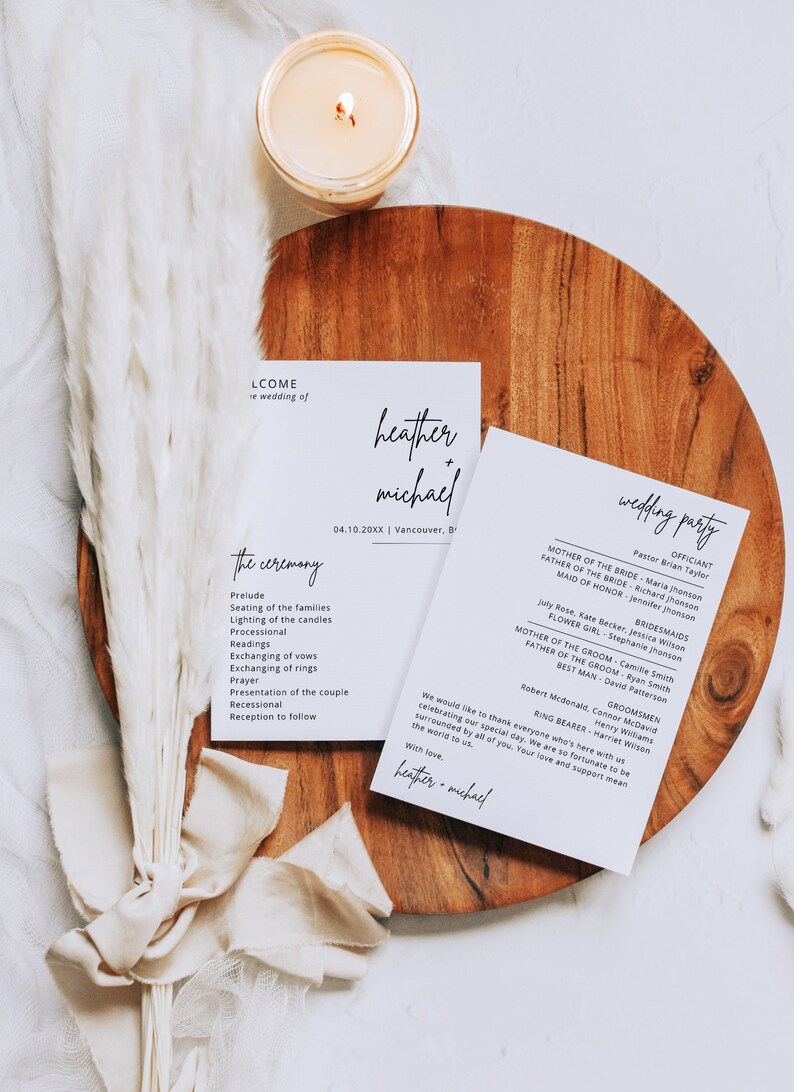 LCOME
he wedding of
heather
+
michael
04.10.20XX | Vancouver, B
the ceremony
Prelude
Seating of the families
Lighting of the candles
Processional
Readings
Exchanging of vows
Exchanging of rings
Prayer
Presentation of the couple
Recessional
Reception to follow
wedding party
OFFICIANT
Pastor Brian Taylor
MOTHER OF THE BRIDE - Maria Jhonson
FATHER OF THE BRIDE - Richard Jhonson
MAID OF HONOR - Jennifer Jhonson
BRIDESMAIDS
July Rose, Kate Becker, Jessica Wilson
FLOWER GIRL - Stephanie Jhonson
MOTHER OF THE GROOM - Camille Smith
FATHER OF THE GROOM - Ryan Smith
BEST MAN - David Patterson
GROOMSMEN
Robert Mcdonald, Connor McDavid
Henry Williams
RING BEARER - Harriet Wilson
We would like to thank everyone who's here with us
celebrating our special day. We are so fortunate to be
surrounded by all of you. Your love and support mean
the world to us.
With love,
heather + michael